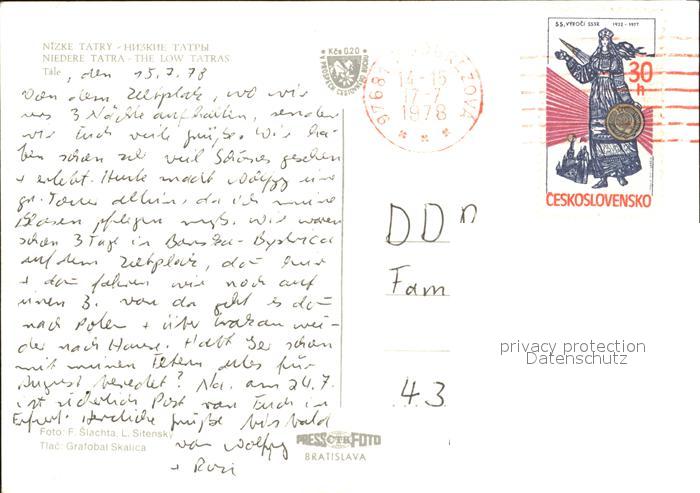 NÍZKE TATRY - НИЗКИЕ ТАТРЫ
NIEDERE TATRA - THE LOW TATRAS
Tále, den 15.7.78
Von dem Zeltplatz, wo wir
uns 3 Nächte aufhalten, senden
wir Euch viele Grüße. Wir ha-
ben schon sehr viel Schönes gesehen
+ erlebt. Heute macht Wolfgg eine
gr. Tour allein, da ich meine
Blasen pflegen muß. Wir waren
schon 3 Tage in Banska-Bystrica
auf dem Zeltplatz, dann hier
+ dann fahren wir noch auf
einen 3. von da geht es dann
nach Polen + über Krakau wie-
der nach Hause. Habt Ihr schon
mit meinen Eltern alles für
August beredet? Na, am 24.7.
ist sicherlich Post von Euch in
Erfurt. Herzliche Grüße bis bald
von Wolfgg
+ Rosi
Foto: F. Šlachta, L. Sitenský
Tlač: Grafobal Skalica
Kčs 0,20
PRESSFOTO
ČTK
BRATISLAVA
14-15
17-7
1978
55. VÝROČÍ SSSR 1922-1977
30
h
ČESKOSLOVENSKO
DD
Fam
43
privacy protection
Datenschutz